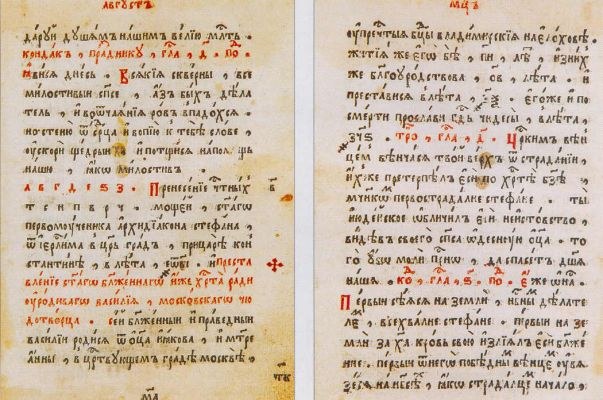 АВГУСТЪ
даруи душамъ нашимъ велїю млⷭть.
кондакъ, празднику, гла, д҃. по.
явися днесь. Всякїя скверны, все
милостивыи спсе, азъ быхъ дѣла
тель, и ѿчаянїя ровъ впадохся.
но стеню ѿ срца и вопїю к тебѣ слове,
ускори щедрыи и потщися на помощь
нашу, яко милостивъ.
Пренесенїе чтныхъ
мощеи, стагѡ
первомученика архидїакона стефана,
ѿ їерлима в црь градъ, при царѣ кон
стантинѣ, в лѣта, и преста
вленїе стагѡ блаженнагѡ иже христа ради
уродивагѡ василїя, московскагѡ чю
дотворца. сеи блженныи и праведныи
василїи родися ѿ оца їякова, и мтре
анны, в црствующемъ градѣ москвѣ,
МЦЪ
пречтыя бцы владимирскїя на елоховѣ.
житїя же егѡ бѣ, лѣ, и з них
же благоуродствова, лѣта. и
преставися в лѣта, егоже и по
смерти прослави гдь чюдесы, в лѣта,
Тро, гла, д҃. Црким вѣн
цем вѣнчася твои верхъ ѿ страданїи,
ихже претерпѣлъ еси по хртѣ бзѣ,
мчнкѡм первострадалне стефане. ты
юдейское обличилъ еси неистовство,
видѣвъ своего спса одесную оца. то
го убѡ моли приснѡ, да спасетъ дшя
нашя. ко, гла, ѕ҃. по.
Первыи сѣяся на земли, нбныи дѣлате
лѣ, всехвалне стефане. первыи на зе
мли за ха кровь свою излїялъ еси блаже
нне. первыи ѿ него побѣды вѣнцемъ увя
зеся на нбсѣхъ, яко страдалцемъ начало,